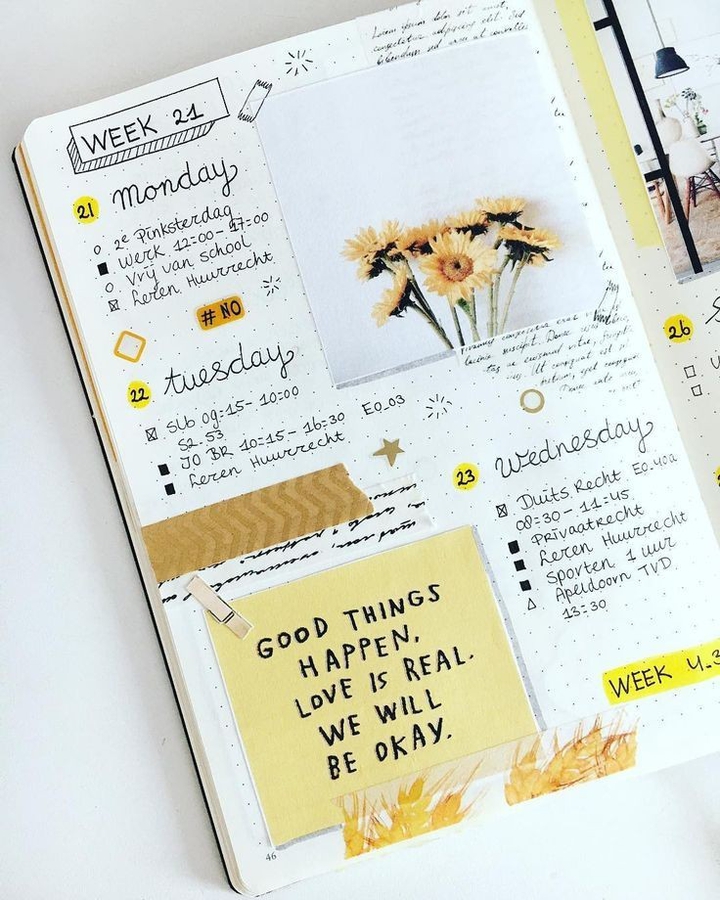 Lorem ipsum dolor sit amet,
consectetur adipiscing elit.
bibendum sed
WEEK 21
21 monday
2e Pinksterdag
Werk 12:00-17:00
Vrij van school
Leren Huurrecht
# NO
22 tuesday
Slb 09:15-10:00
S2.53
JO BR 10:15-16:30 E0.03
Leren Huurrecht
23 Wednesday
Duits Recht E0.40a
08:30-11:45
Privaatrecht
Leren Huurrecht
Sporten 1 uur
Apeldoorn TVD
13:30
GOOD THINGS
HAPPEN,
LOVE IS REAL.
WE WILL
BE OKAY.
WEEK 4.3
26
46